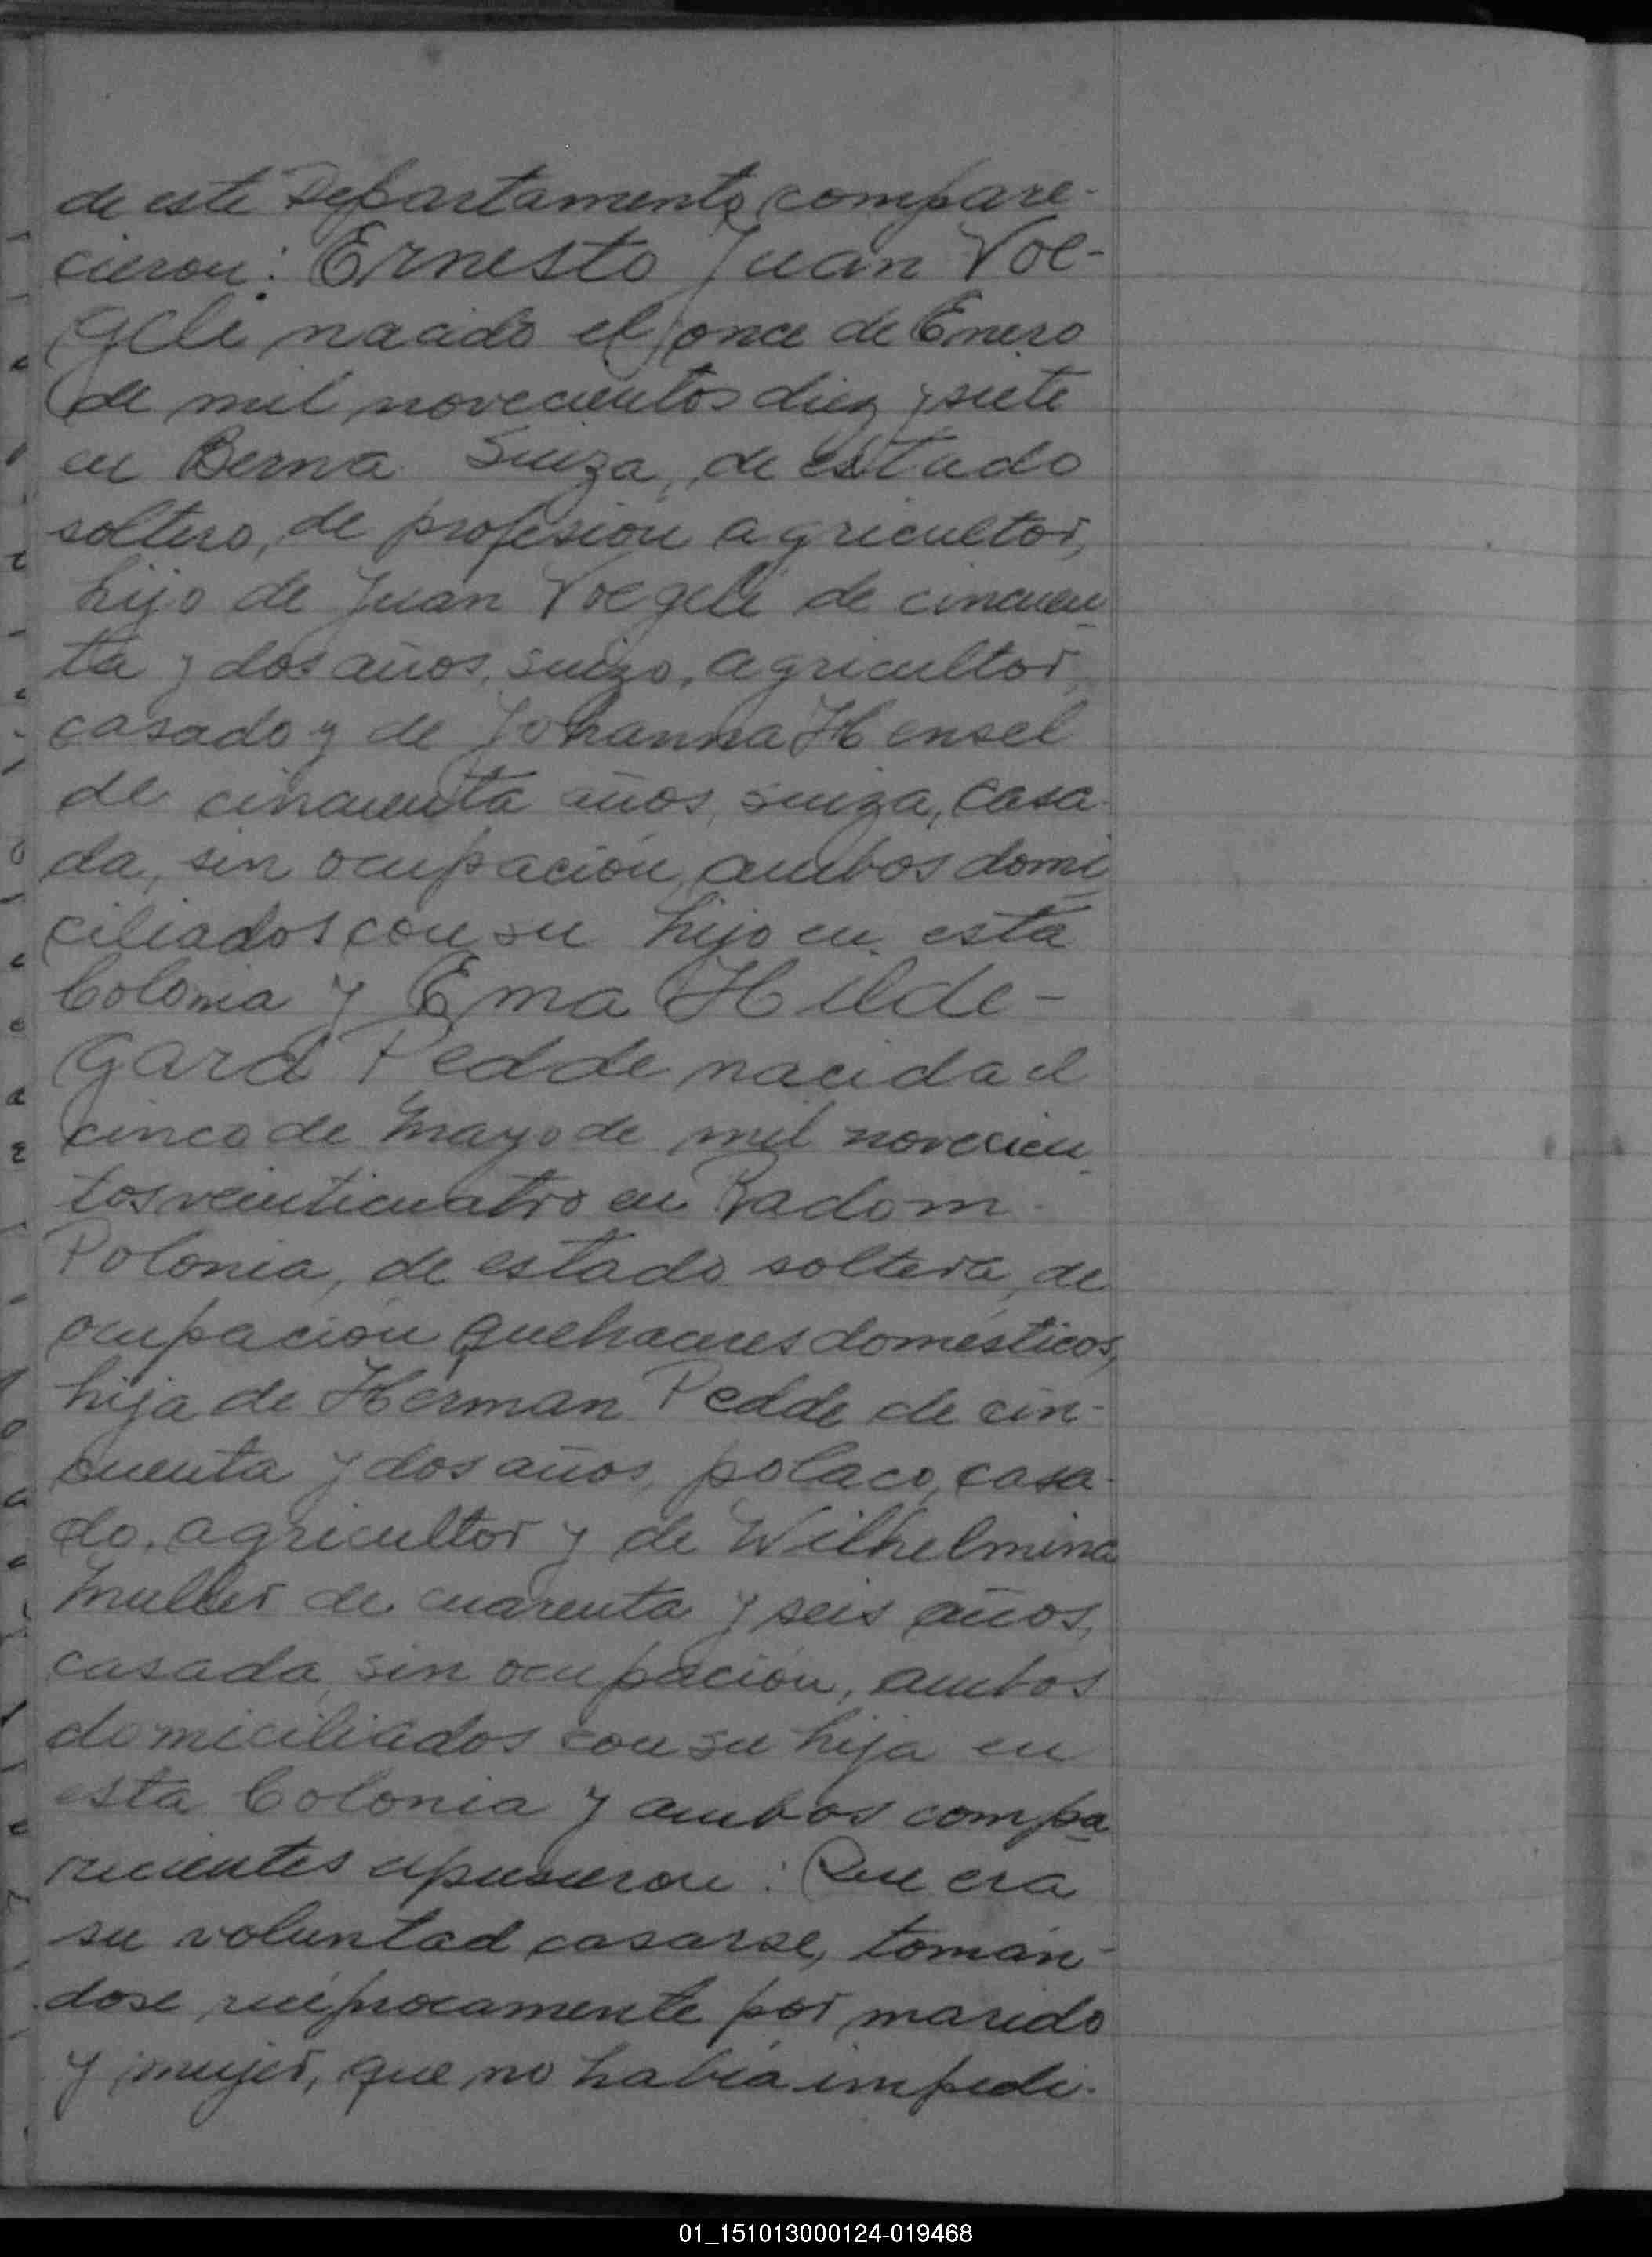 de este Departamento, compare-
cieron: Ernesto Juan Voe-
geli nacido el once de Enero
de mil novecientos diez y siete
en Berna Suiza, de estado
soltero, de profesión agricultor,
hijo de Juan Voegeli de cincuen
ta y dos años, suizo, agricultor,
casado y de Johanna Hensel
de cincuenta años, suiza, casa-
da, sin ocupación, ambos domi
ciliados con su hijo en esta
Colonia y Ema Hilde-
gard Pedde nacida el
cinco de Mayo de mil novecien
tos veinticuatro en Radom-
Polonia, de estado soltera, de
ocupación quehaceres domésticos,
hija de Herman Pedde de cin-
cuenta y dos años, polaco, casa-
do, agricultor y de Wilhelmina
Muller de cuarenta y seis años,
casada, sin ocupación, ambos
domiciliados con su hija en
esta Colonia y ambos compa
recientes expusieron: Que era
su voluntad casarse, tomán-
dose recíprocamente por marido
y mujer, que no había impedi-
01_151013000124-019468